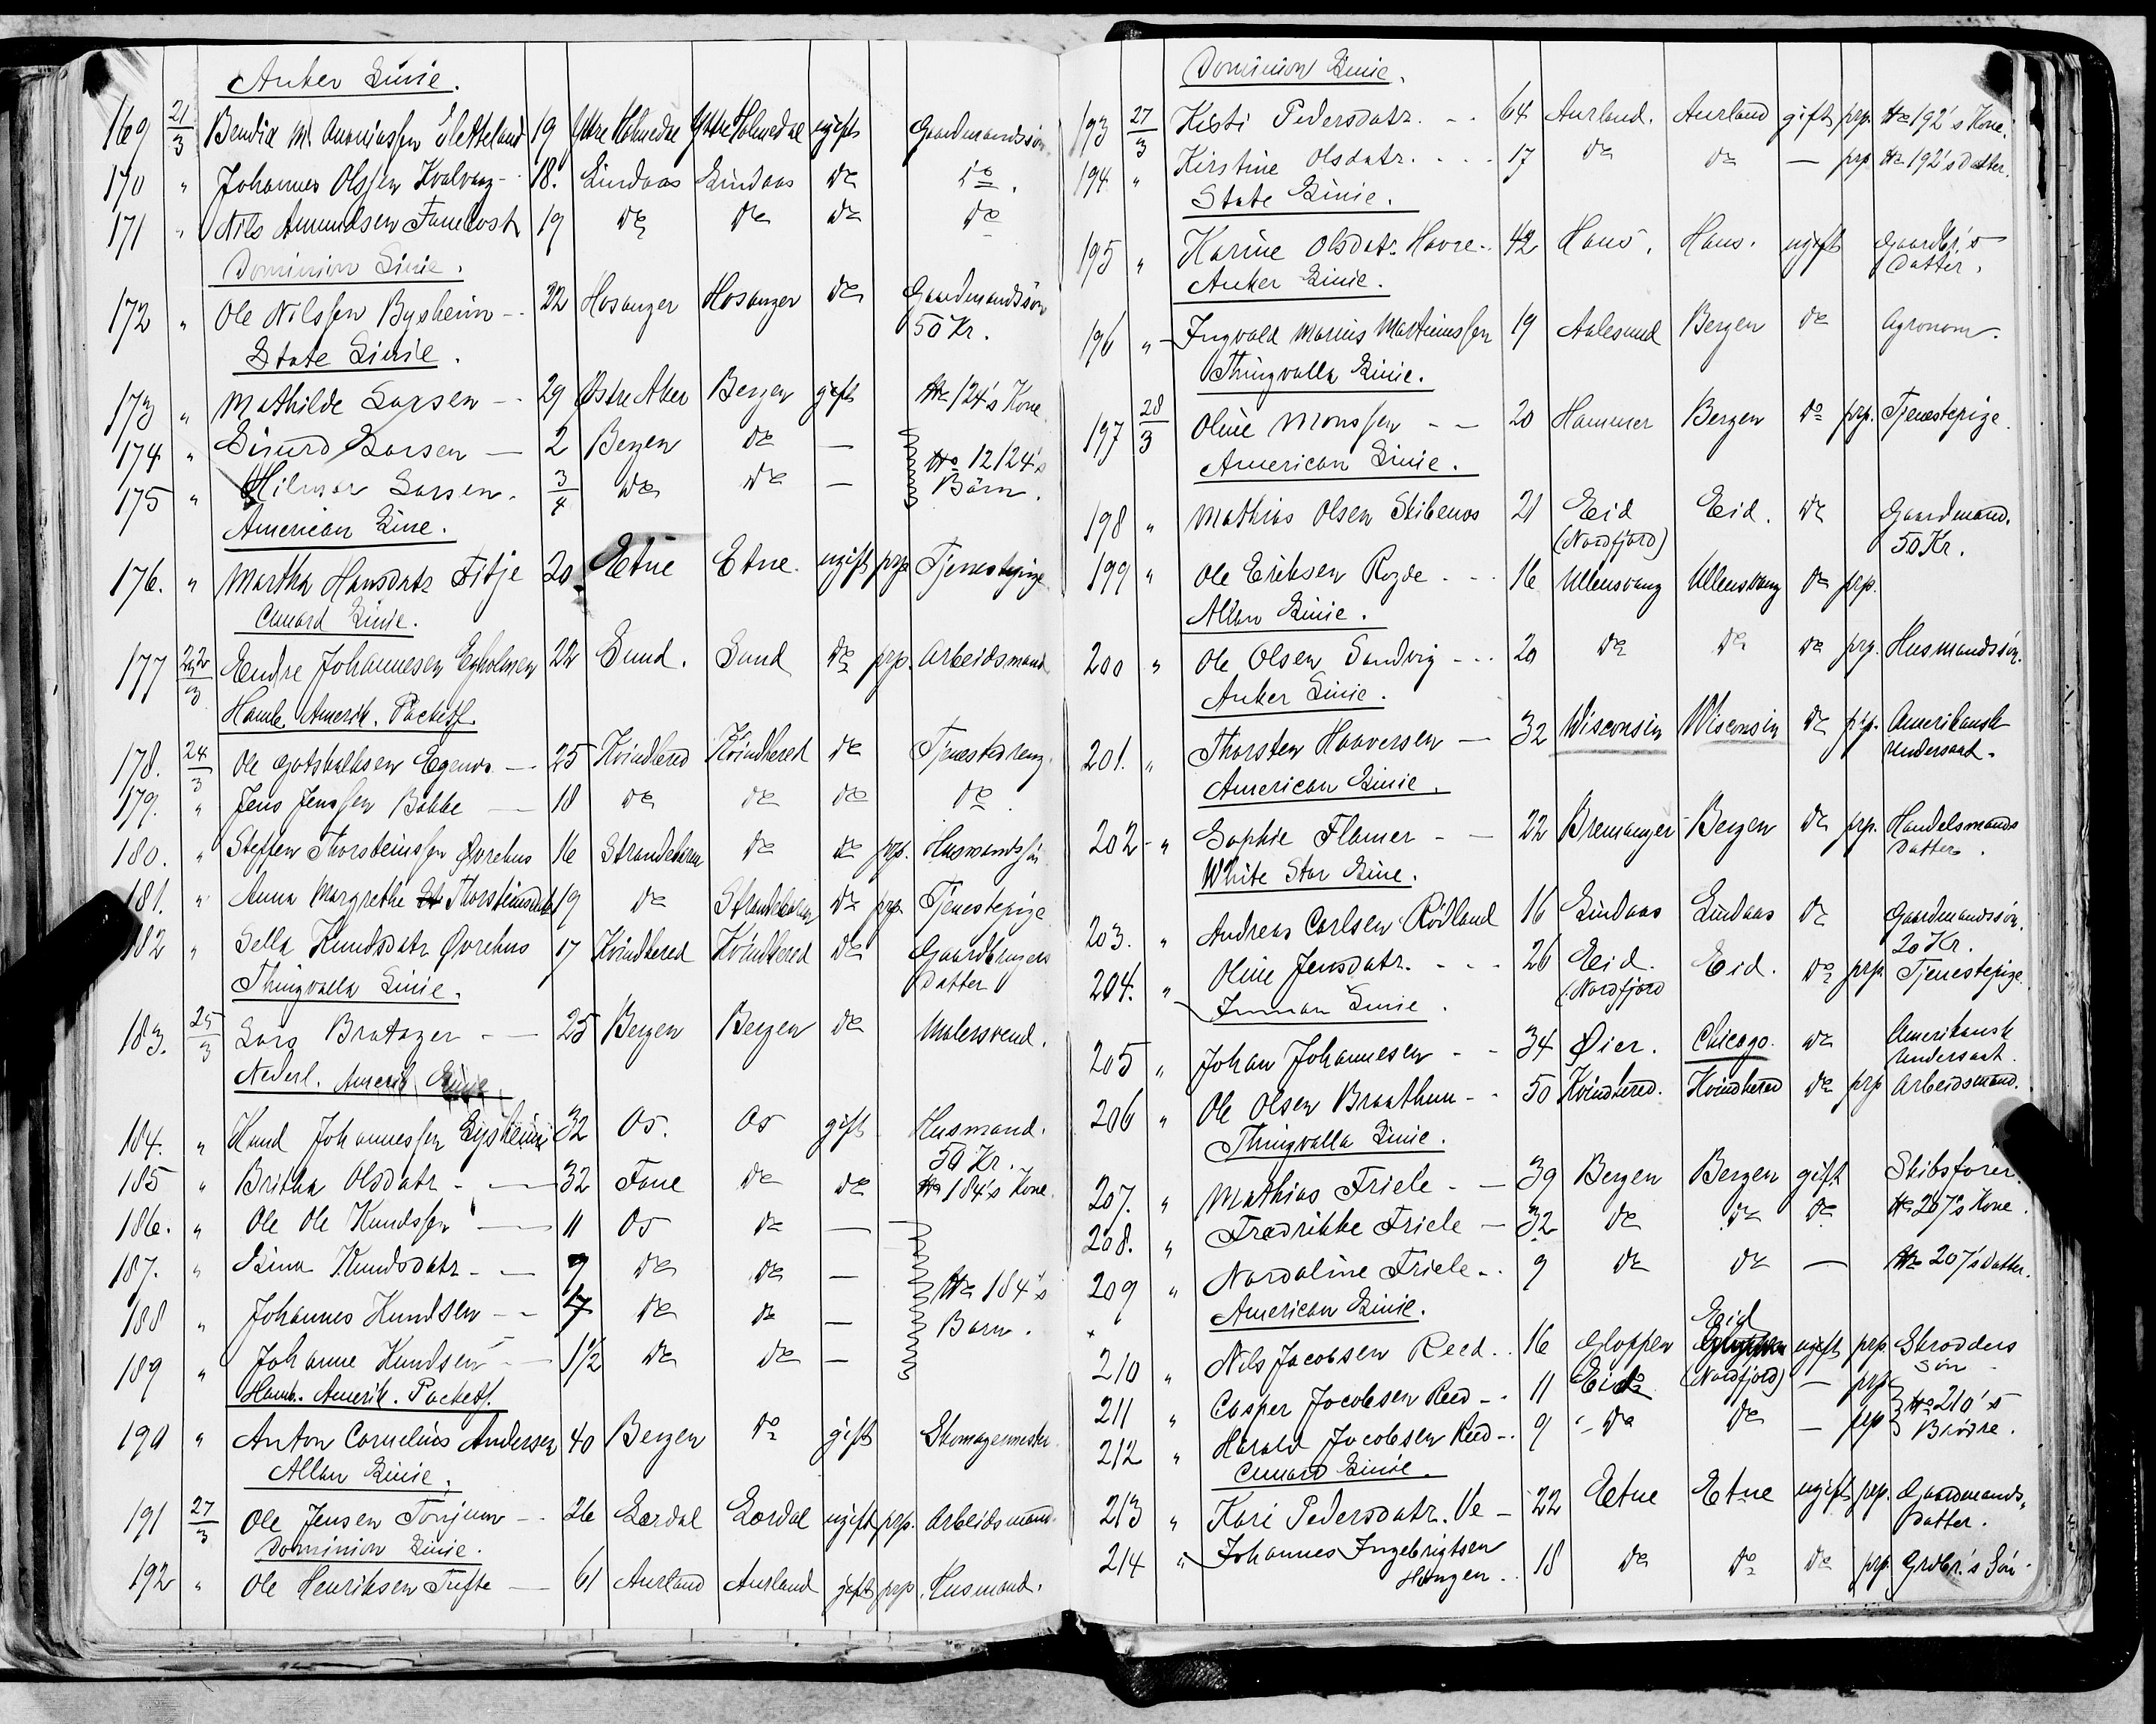 Anker Linie.
169 21/3 Bendix M. Ananiassen Sletteland 19 Ytre Holmedal Ytre Holmedal ugift Gaardmandssön
170 " Johannes Olssen Kvalvaag - 18. Lindaas Lindaas do do.
171 " Nils Amundsen Fanebost 19 do do do do
Dominion Linie.
172 " Ole Nilssen Bysheim - 22 Hosanger Hosanger do Gaardmandssön
50 Kr.
State Linie.
173 " Mathilde Larsen - 29 Østre Aker Bergen gift No 124's Kone
174 " Sigurd Larsen - 2 Bergen do —
No 12124's
175 " Hilmar Larsen. 3/4 do do — Börn.
American Linie.
176. " Martha Hansdatr Fitje 20 Etne Etne. ugift prp Tjenestepige
Cunard Linie.
177 22/3 Endre Johannesen Egholmen 22 Sund. Sund do prp. Arbeidsmand
Hamb. Amerik. Packetf.
178. 24/3 Ole Gotskalksen Egenes - 25 Kvindhered Kvindhered do Tjenestedreng.
179. " Jens Jenssen Bakke - 18 do do do do
180. " Steffen Thorsteinssen Øvrehus 16 Strandebarm do do prp. Husmandssön
181. " Anna Margrethe Thorsteinsdatr 19 do Strandebarm do prp Tjenestepige
182 " Sella Knudsdatr Øvrehus 17 Kvindhered Kvindhered do Gaardbrugers
Datter
Thingvalla Linie.
183. 25/3 Lars Bratager - 25 Bergen Bergen do Malersvend.
Nederl. Amerik. Linie.
184. " Knud Johannessen Lysheim 32 Os. Os gift Husmand.
50 Kr.
185 " Britha Olsdatr - 32 Fane do do No 184's Kone.
186. " Ole Ole Knudssen - 11 Os do —
187. " Lina Knudsdatr - 9 do do —
No 184's
188 " Johannes Knudsen - 7 do do — Barn.
189 " Johanne Knudsen - 1½ do do —
Hamb. Amerik. Packetf.
190 " Anton Cornelius Andersen 40 Bergen do gift Skomagermester.
Allan Linie.
191 27/3 Ole Jensen Tönjum - 26 Lærdal Lærdal ugift prp. Arbeidsmand.
Dominion Linie.
192 " Ole Henriksen Tufte - 61 Aurland Aurland gift prp. Husmand.
Dominion Linie.
193 27/3 Kisti Pedersdatr. - 64 Aurland. Aurland gift prp. No 192's Kone.
194 " Kirstine Olsdatr. - 17 do do — prp No 192's Datter.
State Linie.
195 " Karine Olsdatr. Havre - 42 Haus. Haus. ugift Gaardbr.'s
Datter.
Anker Linie.
196 " Ingvald Marius Martinussen 19 Aalesund Bergen do Agronom.
Thingvalla Linie.
197 28/3 Oline Monssen - 20 Hammer Bergen do prp. Tjenestepige.
American Linie.
198 " Mathias Olsen Skibenes 21 Eid Eid. do Gaardmand.
(Nordfjord) 50 Kr.
199 " Ole Eriksen Rogde - 16 Ullensvang Ullensvang do prp.
Allan Linie.
200 " Ole Olsen Sandvig - 20 do do do prp. Husmandssön.
Anker Linie.
201. " Thorsten Haaversen - 32 Wisconsin Wisconsin do prp. Amerikansk
Undersaat.
American Linie.
202 " Sophie Flamer - 22 Bremanger Bergen do prp. Handelsmands
Datter.
White Star Line.
203. " Andreas Carlsen Rödland 16 Lindaas Lindaas do Gaardmandssön.
20 Kr.
204. " Oline Jensdatr. - 26 Eid. Eid. do prp Tjenestepige.
(Nordfjord
Inman Linie.
205 " Johan Johannesen - 34 Øier. Chicago. do Amerikansk
Undersaat.
206 " Ole Olsen Braathun - 50 Kvindhered. Kvindhered do prp Arbeidsmand.
Thingvalla Linie.
207. " Mathias Friele - 39 Bergen Bergen gift Skibsförer.
208. " Fredrikke Friele - 32 do do do No 207's Kone.
209 " Nordaline Friele - 9 do do — No 207's Datter.
American Linie.
Eid
210 " Nils Jacobsen Reed. 16 Gloppen Gloppen ugift prp Skrædders
(Nordfjord) sön
211 " Casper Jacobsen Reed - 11 Eid — prp No 210's
212 " Harald Jacobsen Reed - 9 do do — prp Brödre.
Cunard Linie.
213 " Kari Pedersdatr. Ve - 22 Etne Etne ugift prp. Gaardmands
Datter.
214 " Johannes Ingebrigtsen 18 do do do prp Grdbr.'s Sön
Haugen.